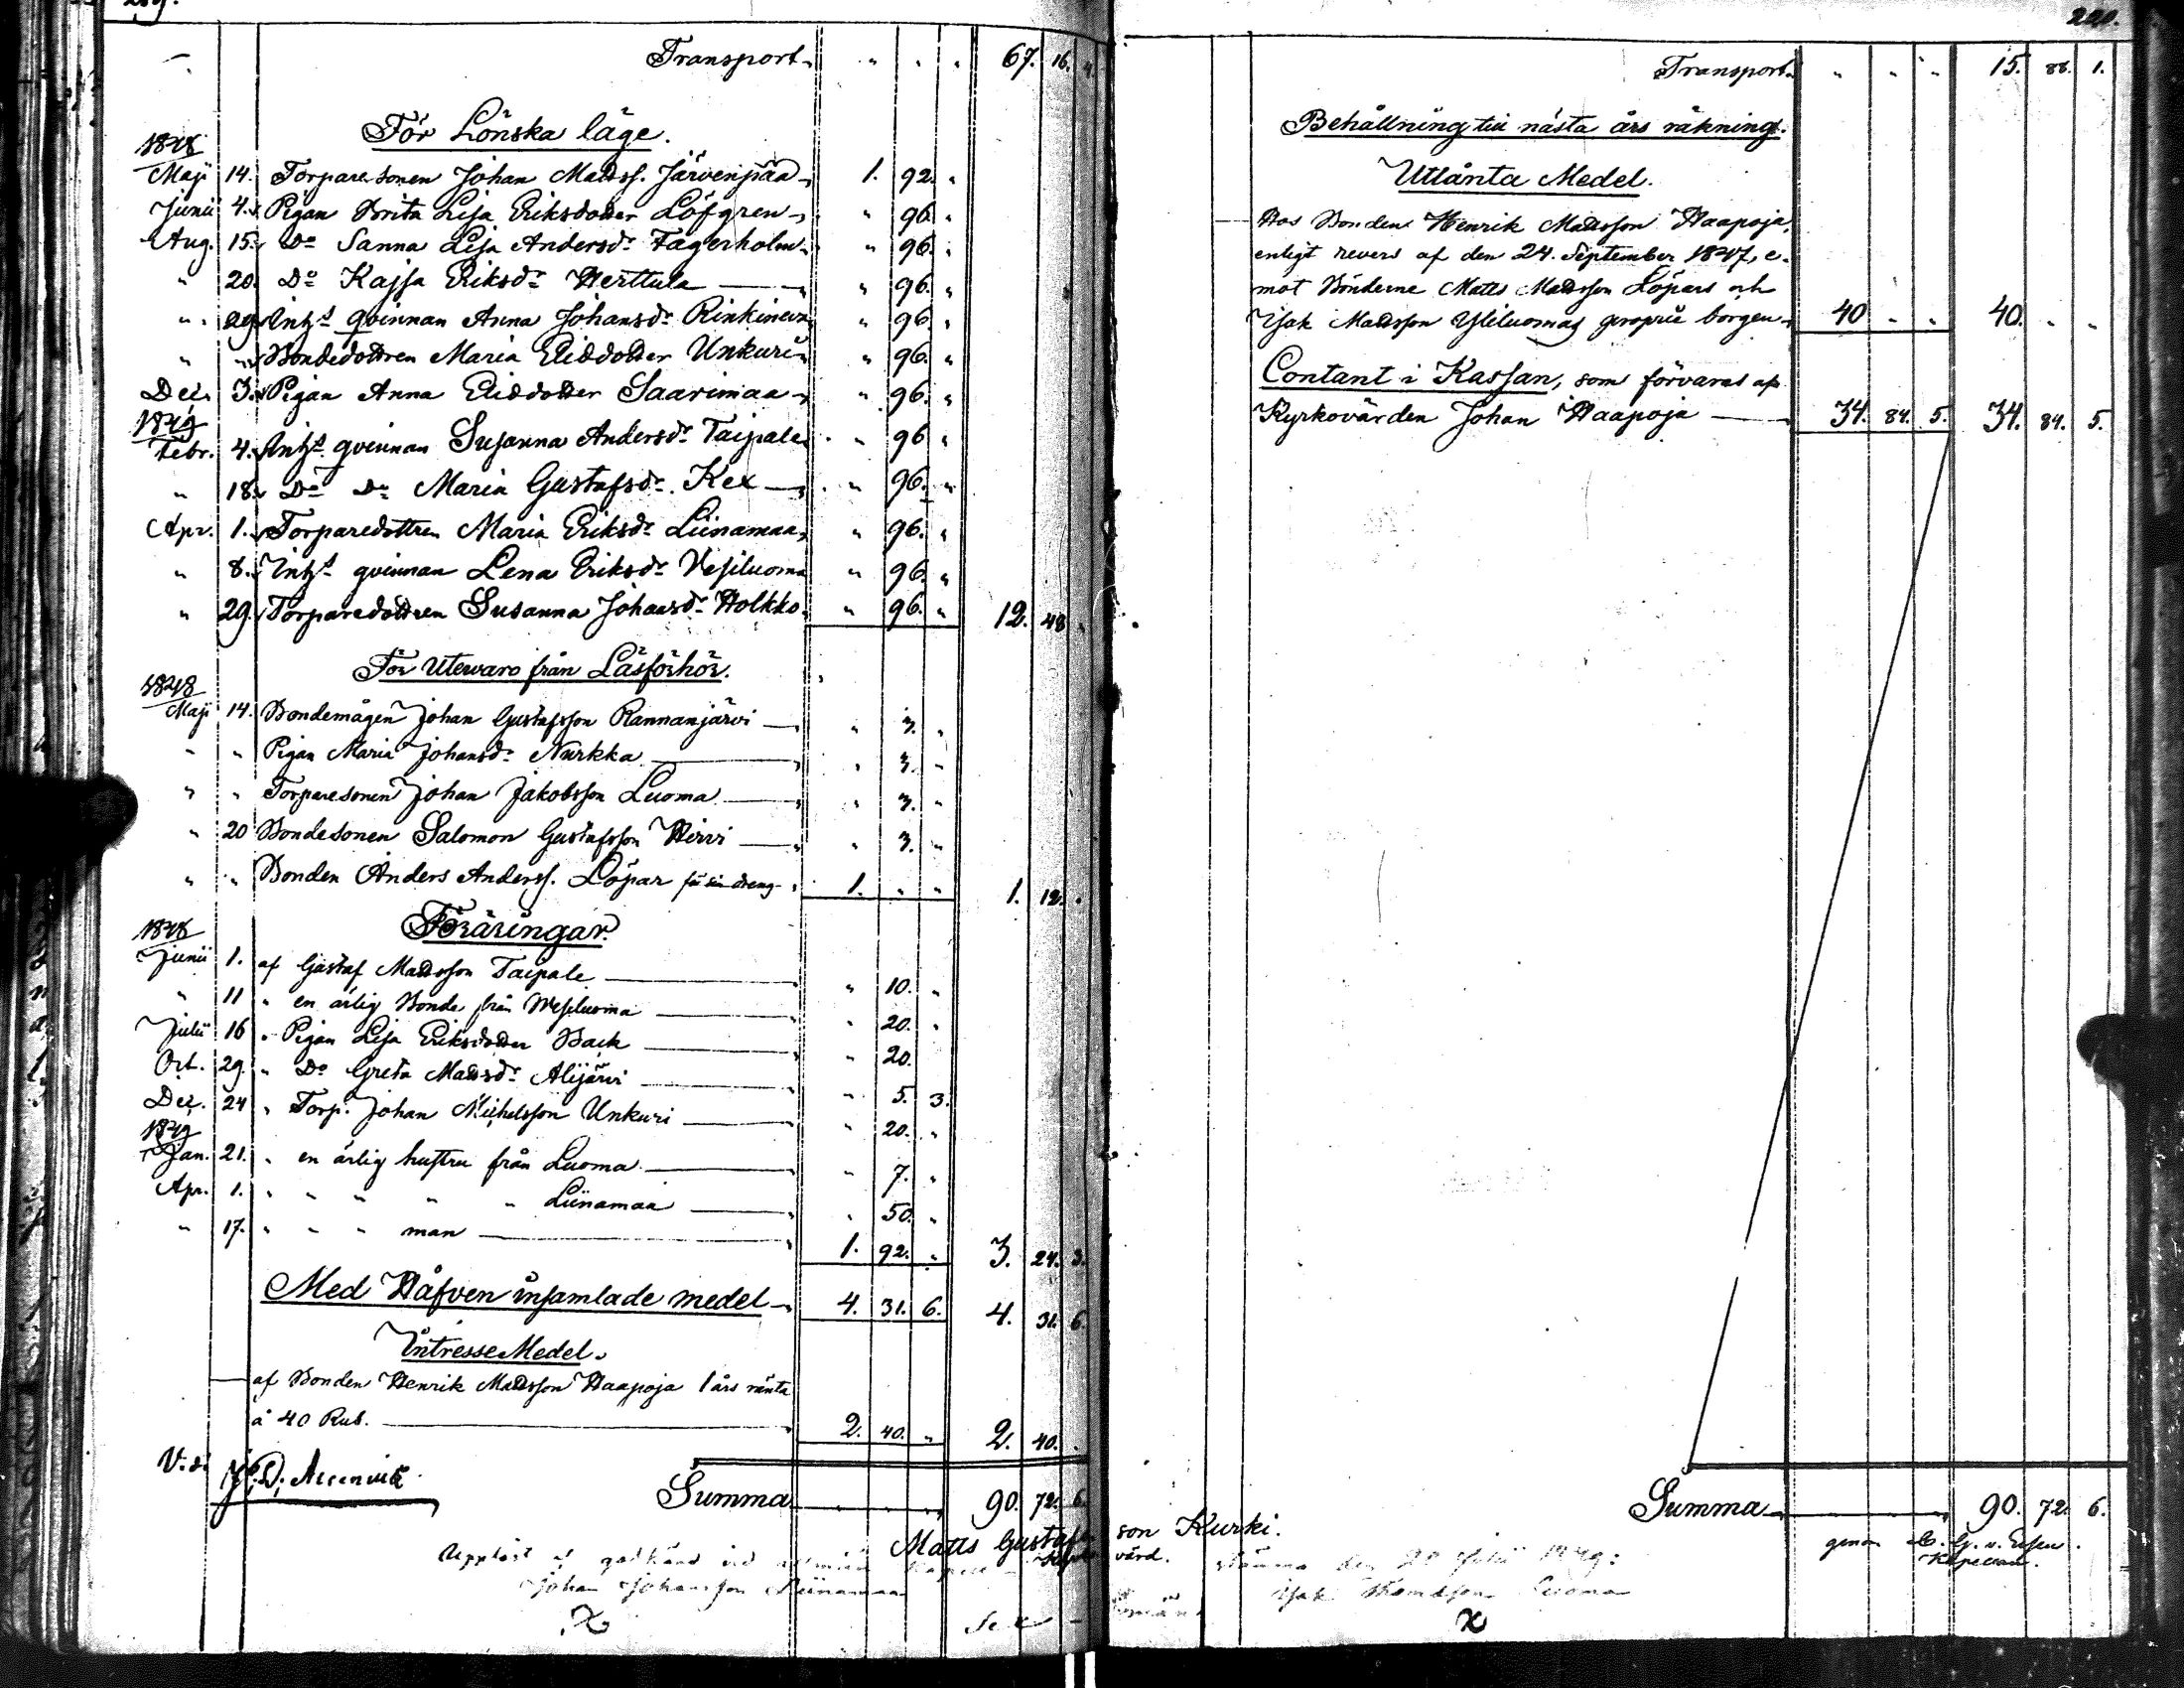 289.
Transport " " " 67. 16. 4.
För Lönska läge.
1848
Maji 14. Torparesonen Johan Mattss. Järvenpää 1. 92. "
Junii 4. Pigan Brita Lisa Eriksdotter Löfgren " 96. "
Aug. 15. Do Sanna Lisa Andersdr Fagerholm " 96. "
" 20. Do Kajsa Eriksdr Herttula " 96. "
" 29. Inhs qvinnan Anna Johansdr Rinkinen " 96. "
" " Bondedottren Maria Eliedotter Unkuri " 96. "
Dec. 3. Pigan Anna Eliedotter Saarimaa " 96. "
1849
Febr. 4. Inhs qvinnan Susanna Andersdr Taipale " 96 "
" 18. Do Do Maria Gustafsdr. Kex " 96. "
Apr. 1. Torparedottren Maria Eriksdr Liinamaa " 96. "
" 8. Inhs qvinnan Lena Eriksdr Vesiluoma " 96. "
" 29. Torparedottren Susanna Johansdr Holkko " 96. " 12. 48 "
För Utewaro från Läsförhör.
1848
Maji 14. Bondemågen Johan Gustafsson Rannanjärvi " 3. "
" " Pigan Maria Johansdr Nurkka " 3. "
" " Torparesonen Johan Jakobsson Luoma " 3. "
" 20 Bondesonen Salomon Gustafsson Hirvi " 3. "
" " Bonden Anders Anderss. Löpar för sin dreng 1. " " 1. 12. "
Föräringar.
1848
Junii 1. af Gustaf Mattsson Taipale " 10. "
" 11 " en ärlig Bonde från Wesiluoma " 20. "
Julii 16 " Pigan Lisa Eriksdotter Back " 20.
Oct. 29. " Do Greta Mattsdr Alijärvi " 5. 3.
Dec. 24 " Torp. Johan Michelsson Unkuri " 20. "
1849
Jan. 21. " en ärlig hustru från Luoma " 7. "
Apr. 1. " " " " " Liinamaa " 50. "
" 17. " " " man 1. 92. " 3. 24. 3.
Med Håfven insamlade medel 4. 31. 6. 4. 31. 6.
Intresse Medel.
af Bonden Henrik Mattsson Haapoja 1 års ränta
à 40 Rub. 2. 40. " 2. 40. "
Summa 90. 72. 6.
Matts Gustafsson Kurki.
Upplöst &amp; godkänd vid
Johan Johansson Liinamaa
220.
Transport " " " 15. 88. 1.
Behållning till nästa års räkning.
Utlånta Medel.
Hos Bonden Henrik Mattsson Haapoja,
enligt revers af den 24. September 1847, e-
mot Bönderne Matts Mattsson Löpars och
Isak Mattsson Yliluomas proprie borgen 40 " " 40. " "
Contant i Kassan, som förvaras af
Kyrkovärden Johan Haapoja 34. 84. 5. 34. 84. 5.
Summa 90. 72. 6.
vård.
Isak Thomasson Luoma